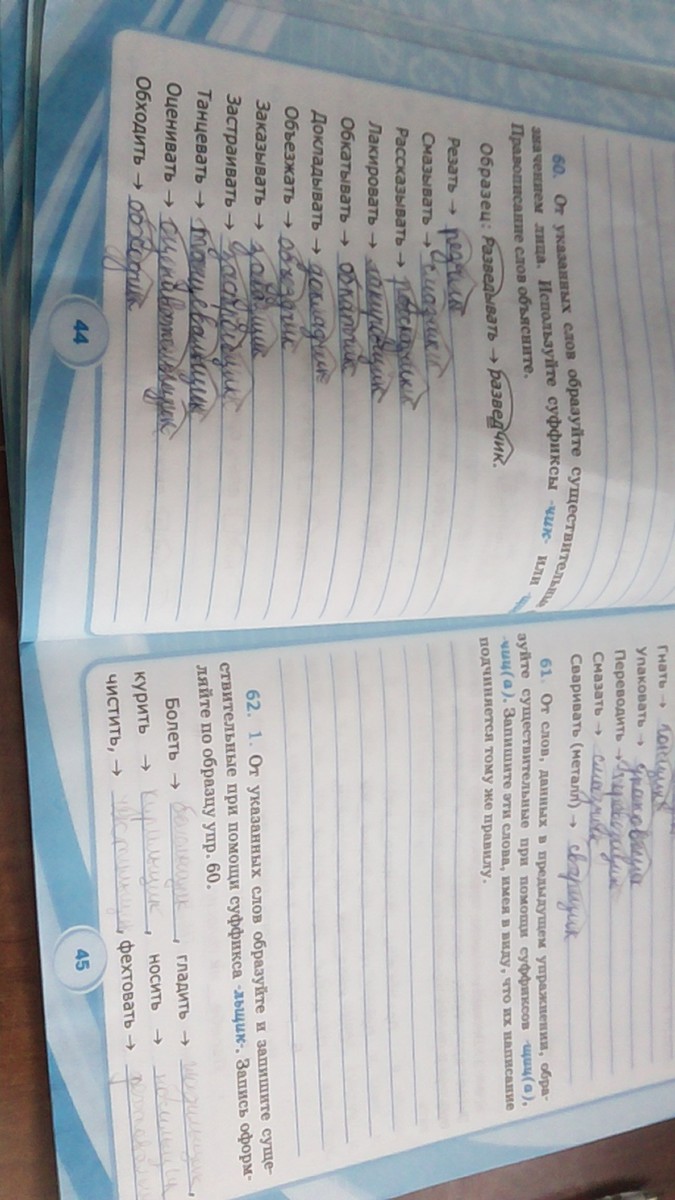 60. От указанных слов образуйте существительные
значением лица. Используйте суффиксы -чик- или
Правописание слов объясните.
Образец: Разведывать → разведчик.
Резать → резчик
Смазывать → смазчик
Рассказывать → рассказчик
Лакировать → лакировщик
Обкатывать → обкатчик
Докладывать → докладчик
Объезжать → объездчик
Заказывать →
Застраивать → застройщик
Танцевать → танцевальщик
Оценивать →
Обходить → обходчик
44
Гнать → гонщик
Упаковать → упаковщик
Переводить → переводчик
Смазать → смазчик
Сваривать (металл) → сварщик
61. От слов, данных в предыдущем упражнении, обра-
зуйте существительные при помощи суффиксов -щиц(а),
-чиц(а). Запишите эти слова, имея в виду, что их написание
подчиняется тому же правилу.
62. 1. От указанных слов образуйте и запишите суще-
ствительные при помощи суффикса -льщик-. Запись оформ-
ляйте по образцу упр. 60.
Болеть → болельщик, гладить →
курить → курильщик, носить → носильщик
чистить, → чистильщик, фехтовать →
45